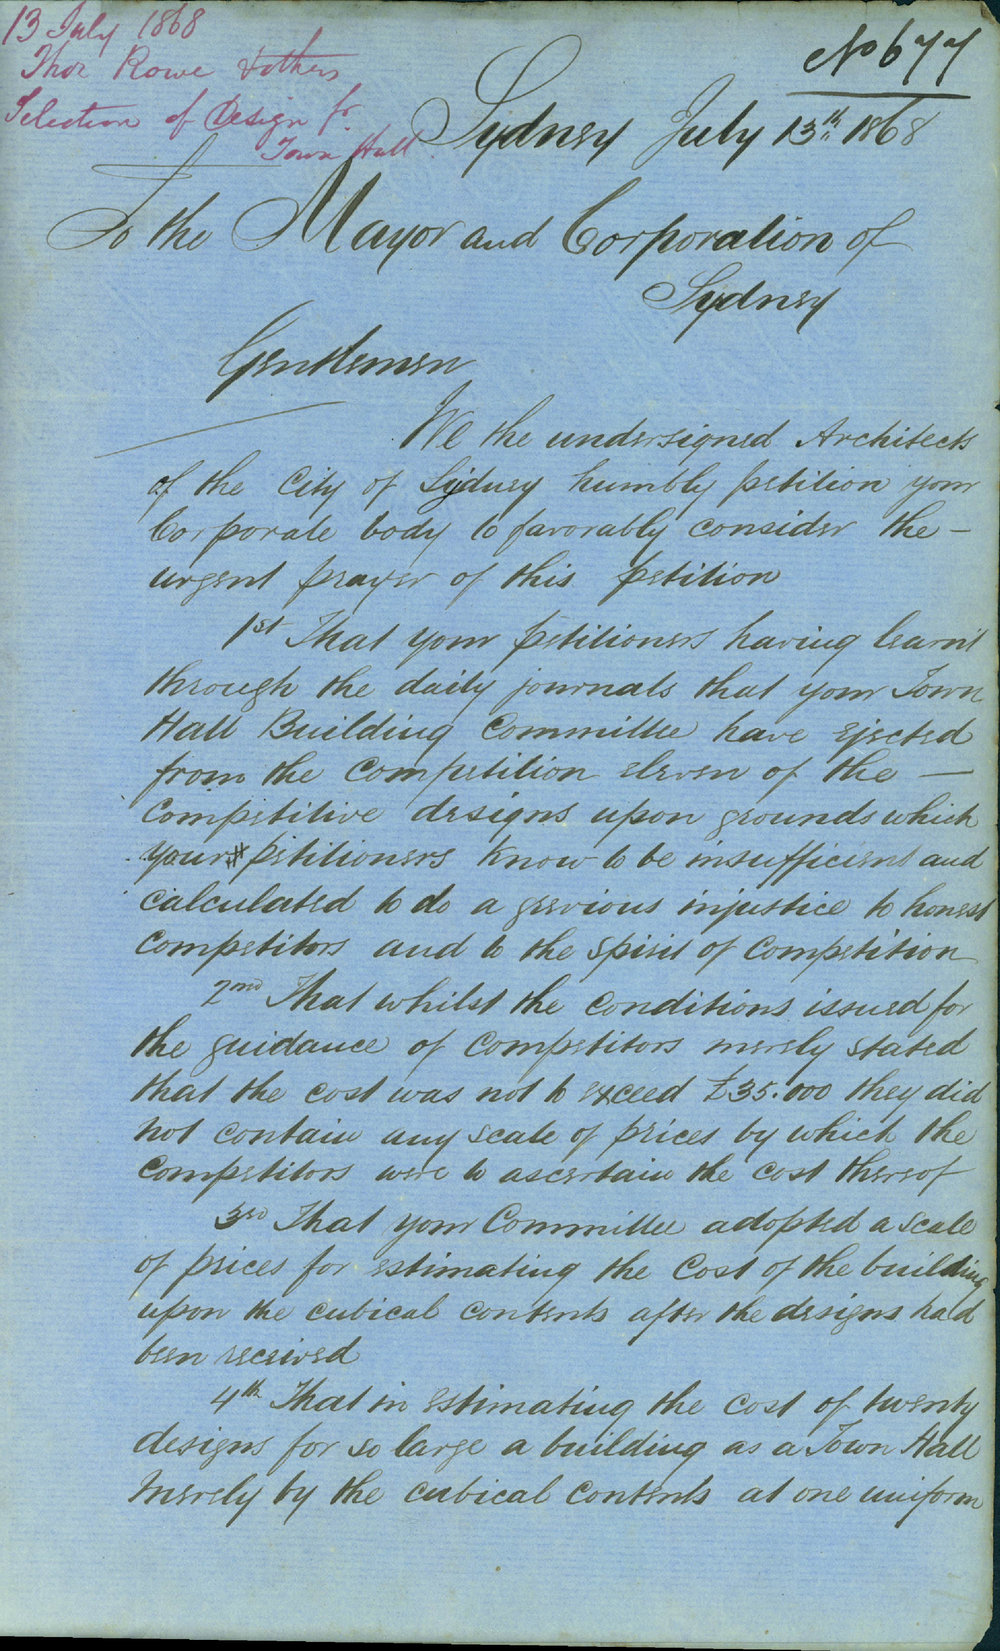 13 July 1868
Thos Rowe & others
Selection of Design fr.
Town Hall.
No 677
Sydney July 13th 1868
To the Mayor and Corporation of
Sydney
Gentlemen
We the undersigned Architects
of the City of Sydney humbly petition your
Corporate body to favorably consider the -
urgent prayer of this petition
1st That your petitioners having learnt
through the daily journals that your Town
Hall Building Committee have ejected
from the competition eleven of the —
Competitive designs upon grounds which
your petitioners know to be insufficient and
calculated to do a grevious injustice to honest
Competitors and to the spirit of Competition
2nd That whilst the Conditions issued for
the guidance of Competitors merely stated
that the cost was not to exceed £35.000 they did
not contain any scale of prices by which the
Competitors were to ascertain the cost thereof
3rd That your Committee adopted a scale
of prices for estimating the Cost of the building
upon the cubical contents after the designs had
been received
4th That in estimating the cost of twenty
designs for so large a building as a Town Hall
merely by the cubical contents at one uniform